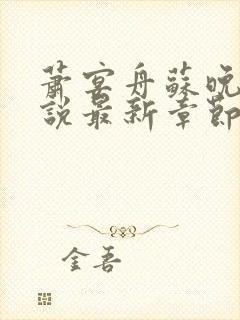 萧宴舟蘇晚
說最新章節
金吾